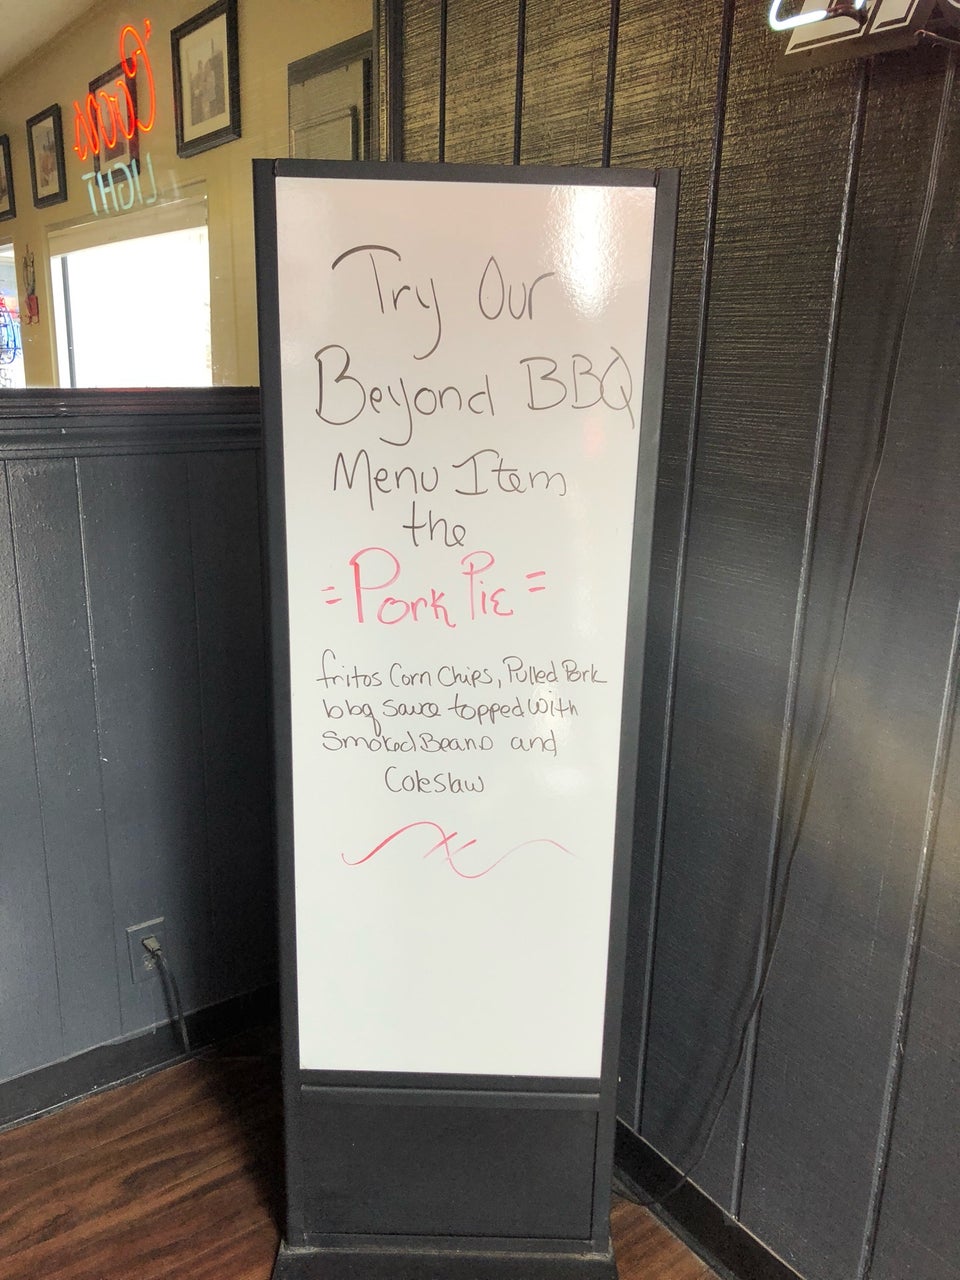 Coors
LIGHT
Try Our
Beyond BBQ
Menu Item
the
= Pork Pie =
fritos Corn Chips, Pulled Pork
bbq sauce topped with
Smoked Beans and
Coleslaw